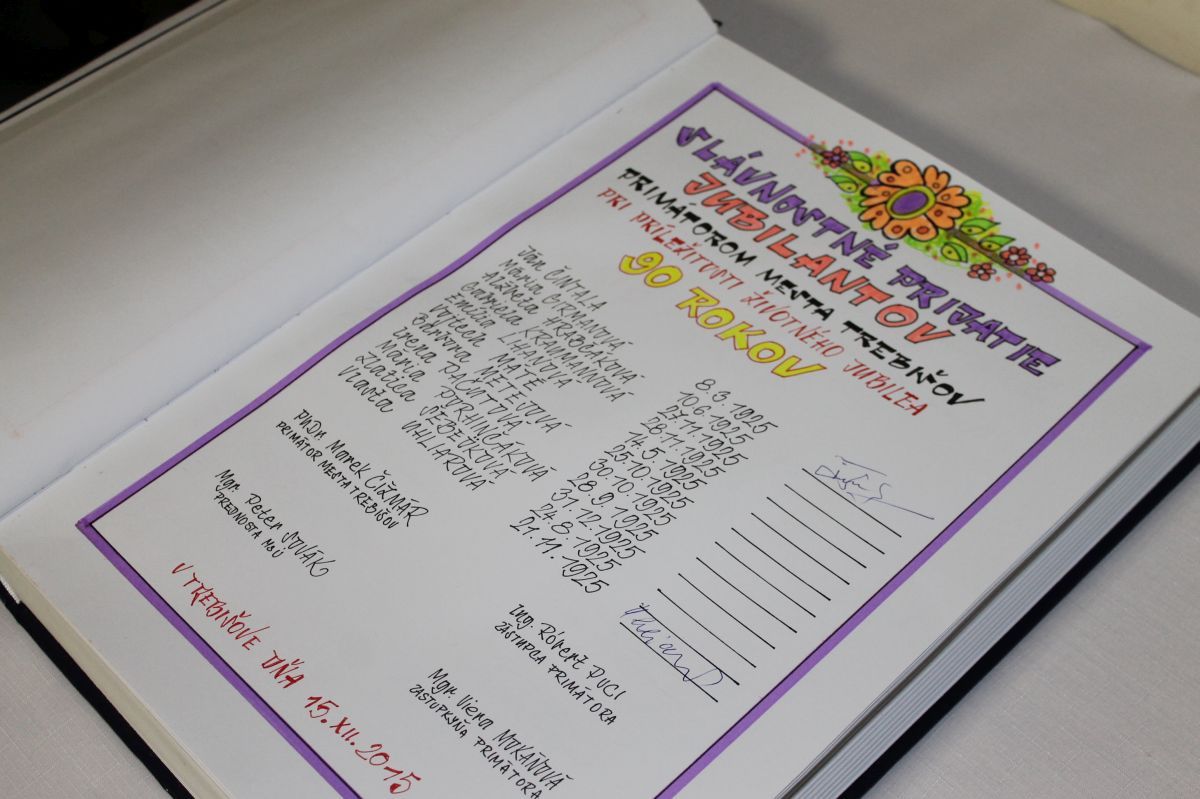 SLÁVNOSTNÉ PRIJATIE
JUBILANTOV
PRIMÁTOROM MESTA TREBIŠOV
PRI PRÍLEŽITOSTI ŽIVOTNÉHO JUBILEA
90 ROKOV
Ján ČINTALA 8.3.1925
Mária CIRMANOVÁ 10.6.1925
Alžbeta 27.11.1925
Gabriela KRAUMANOVÁ 28.11.1925
Emília 14.5.1925
Vojtech MATÉ 25.10.1925
Barbora METEJOVÁ 30.10.1925
Irena PAČUTOVÁ 28.9.1925
Mária 31.12.1925
Zlatica 24.8.1925
Vlasta UHLIAROVÁ 21.11.1925
PhDr. Marek ČIŽMÁR
PRIMÁTOR MESTA TREBIŠOV
Ing. Róbert PUCI
ZÁSTUPCA PRIMÁTORA
Mgr. Peter SOVÁK
PREDNOSTA MsÚ
Mgr. Viera MOKÁŇOVÁ
ZÁSTUPKYŇA PRIMÁTORA
V TREBIŠOVE DŇA 15.XII.2015